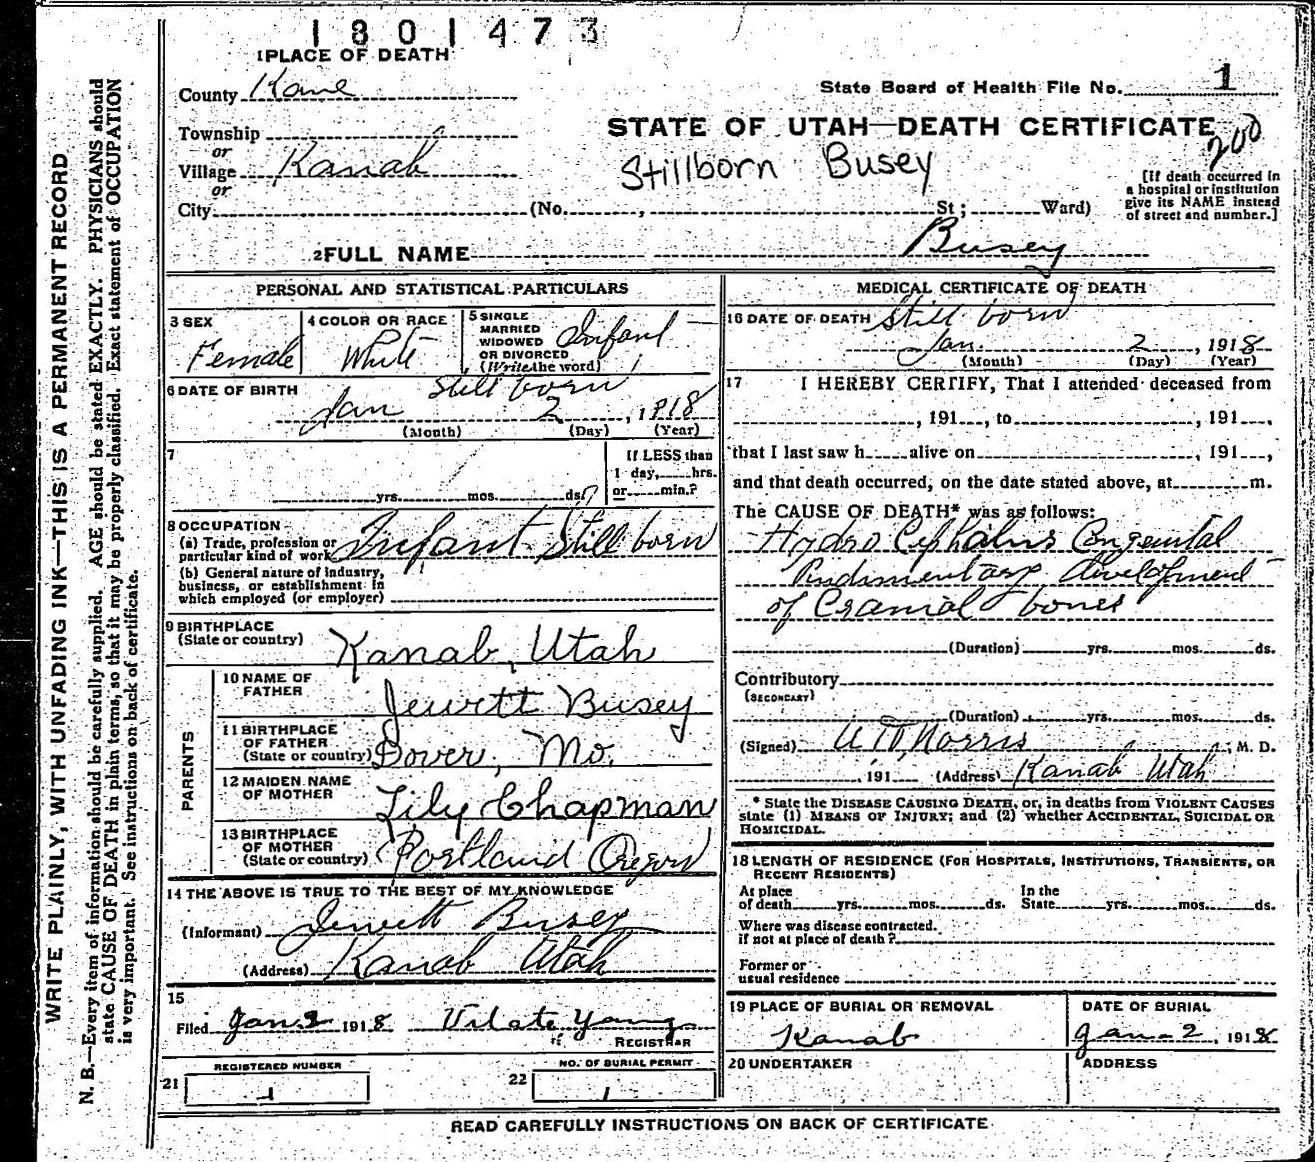 1801473
1 PLACE OF DEATH
County Kane
State Board of Health File No. 1
Township
or
Village Kanab
or
City (No. , St; Ward)
STATE OF UTAH—DEATH CERTIFICATE
200
Stillborn Busey
[If death occurred in
a hospital or institution
give its NAME instead
of street and number.]
2 FULL NAME Busey
PERSONAL AND STATISTICAL PARTICULARS
3 SEX
Female
4 COLOR OR RACE
White
5 SINGLE
MARRIED
WIDOWED
OR DIVORCED
(Write the word)
Infant
6 DATE OF BIRTH Still born
Jan 2, 1918
(Month) (Day) (Year)
7
yrs. mos. ds.
If LESS than
1 day, hrs.
or min.?
8 OCCUPATION
(a) Trade, profession or
particular kind of work Infant Still born
(b) General nature of industry,
business, or establishment in
which employed (or employer)
9 BIRTHPLACE
(State or country) Kanab, Utah
PARENTS
10 NAME OF
FATHER Jewett Busey
11 BIRTHPLACE
OF FATHER
(State or country) Dover, Mo.
12 MAIDEN NAME
OF MOTHER Lily Chapman
13 BIRTHPLACE
OF MOTHER
(State or country) Portland Oregon
14 THE ABOVE IS TRUE TO THE BEST OF MY KNOWLEDGE
(Informant) Jewett Busey
(Address) Kanab Utah
15
Filed Jan 2 1918 Vilate Young
REGISTRAR
REGISTERED NUMBER
21 1
NO. OF BURIAL PERMIT
22 1
MEDICAL CERTIFICATE OF DEATH
16 DATE OF DEATH Still born
Jan. 2, 1918
(Month) (Day) (Year)
17 I HEREBY CERTIFY, That I attended deceased from
, 191 , to , 191 ,
that I last saw h alive on , 191 ,
and that death occurred, on the date stated above, at m.
The CAUSE OF DEATH* was as follows:
Hydro Cephalus Congenital
Rudimentary development
of Cranial bones
(Duration) yrs. mos. ds.
Contributory
(SECONDARY)
(Duration) yrs. mos. ds.
(Signed) Norris, M. D.
, 191 (Address) Kanab Utah
* State the DISEASE CAUSING DEATH, or, in deaths from VIOLENT CAUSES
state (1) MEANS OF INJURY; and (2) whether ACCIDENTAL, SUICIDAL OR
HOMICIDAL.
18 LENGTH OF RESIDENCE (FOR HOSPITALS, INSTITUTIONS, TRANSIENTS, OR
RECENT RESIDENTS)
At place
of death yrs. mos. ds.
In the
State yrs. mos. ds.
Where was disease contracted.
if not at place of death?
Former or
usual residence
19 PLACE OF BURIAL OR REMOVAL
Kanab
DATE OF BURIAL
Jan 2, 1918
20 UNDERTAKER
ADDRESS
READ CAREFULLY INSTRUCTIONS ON BACK OF CERTIFICATE
WRITE PLAINLY, WITH UNFADING INK—THIS IS A PERMANENT RECORD
N. B.—Every item of information should be carefully supplied. AGE should be stated EXACTLY. PHYSICIANS should
state CAUSE OF DEATH in plain terms, so that it may be properly classified. Exact statement of OCCUPATION
is very important. See instructions on back of certificate.